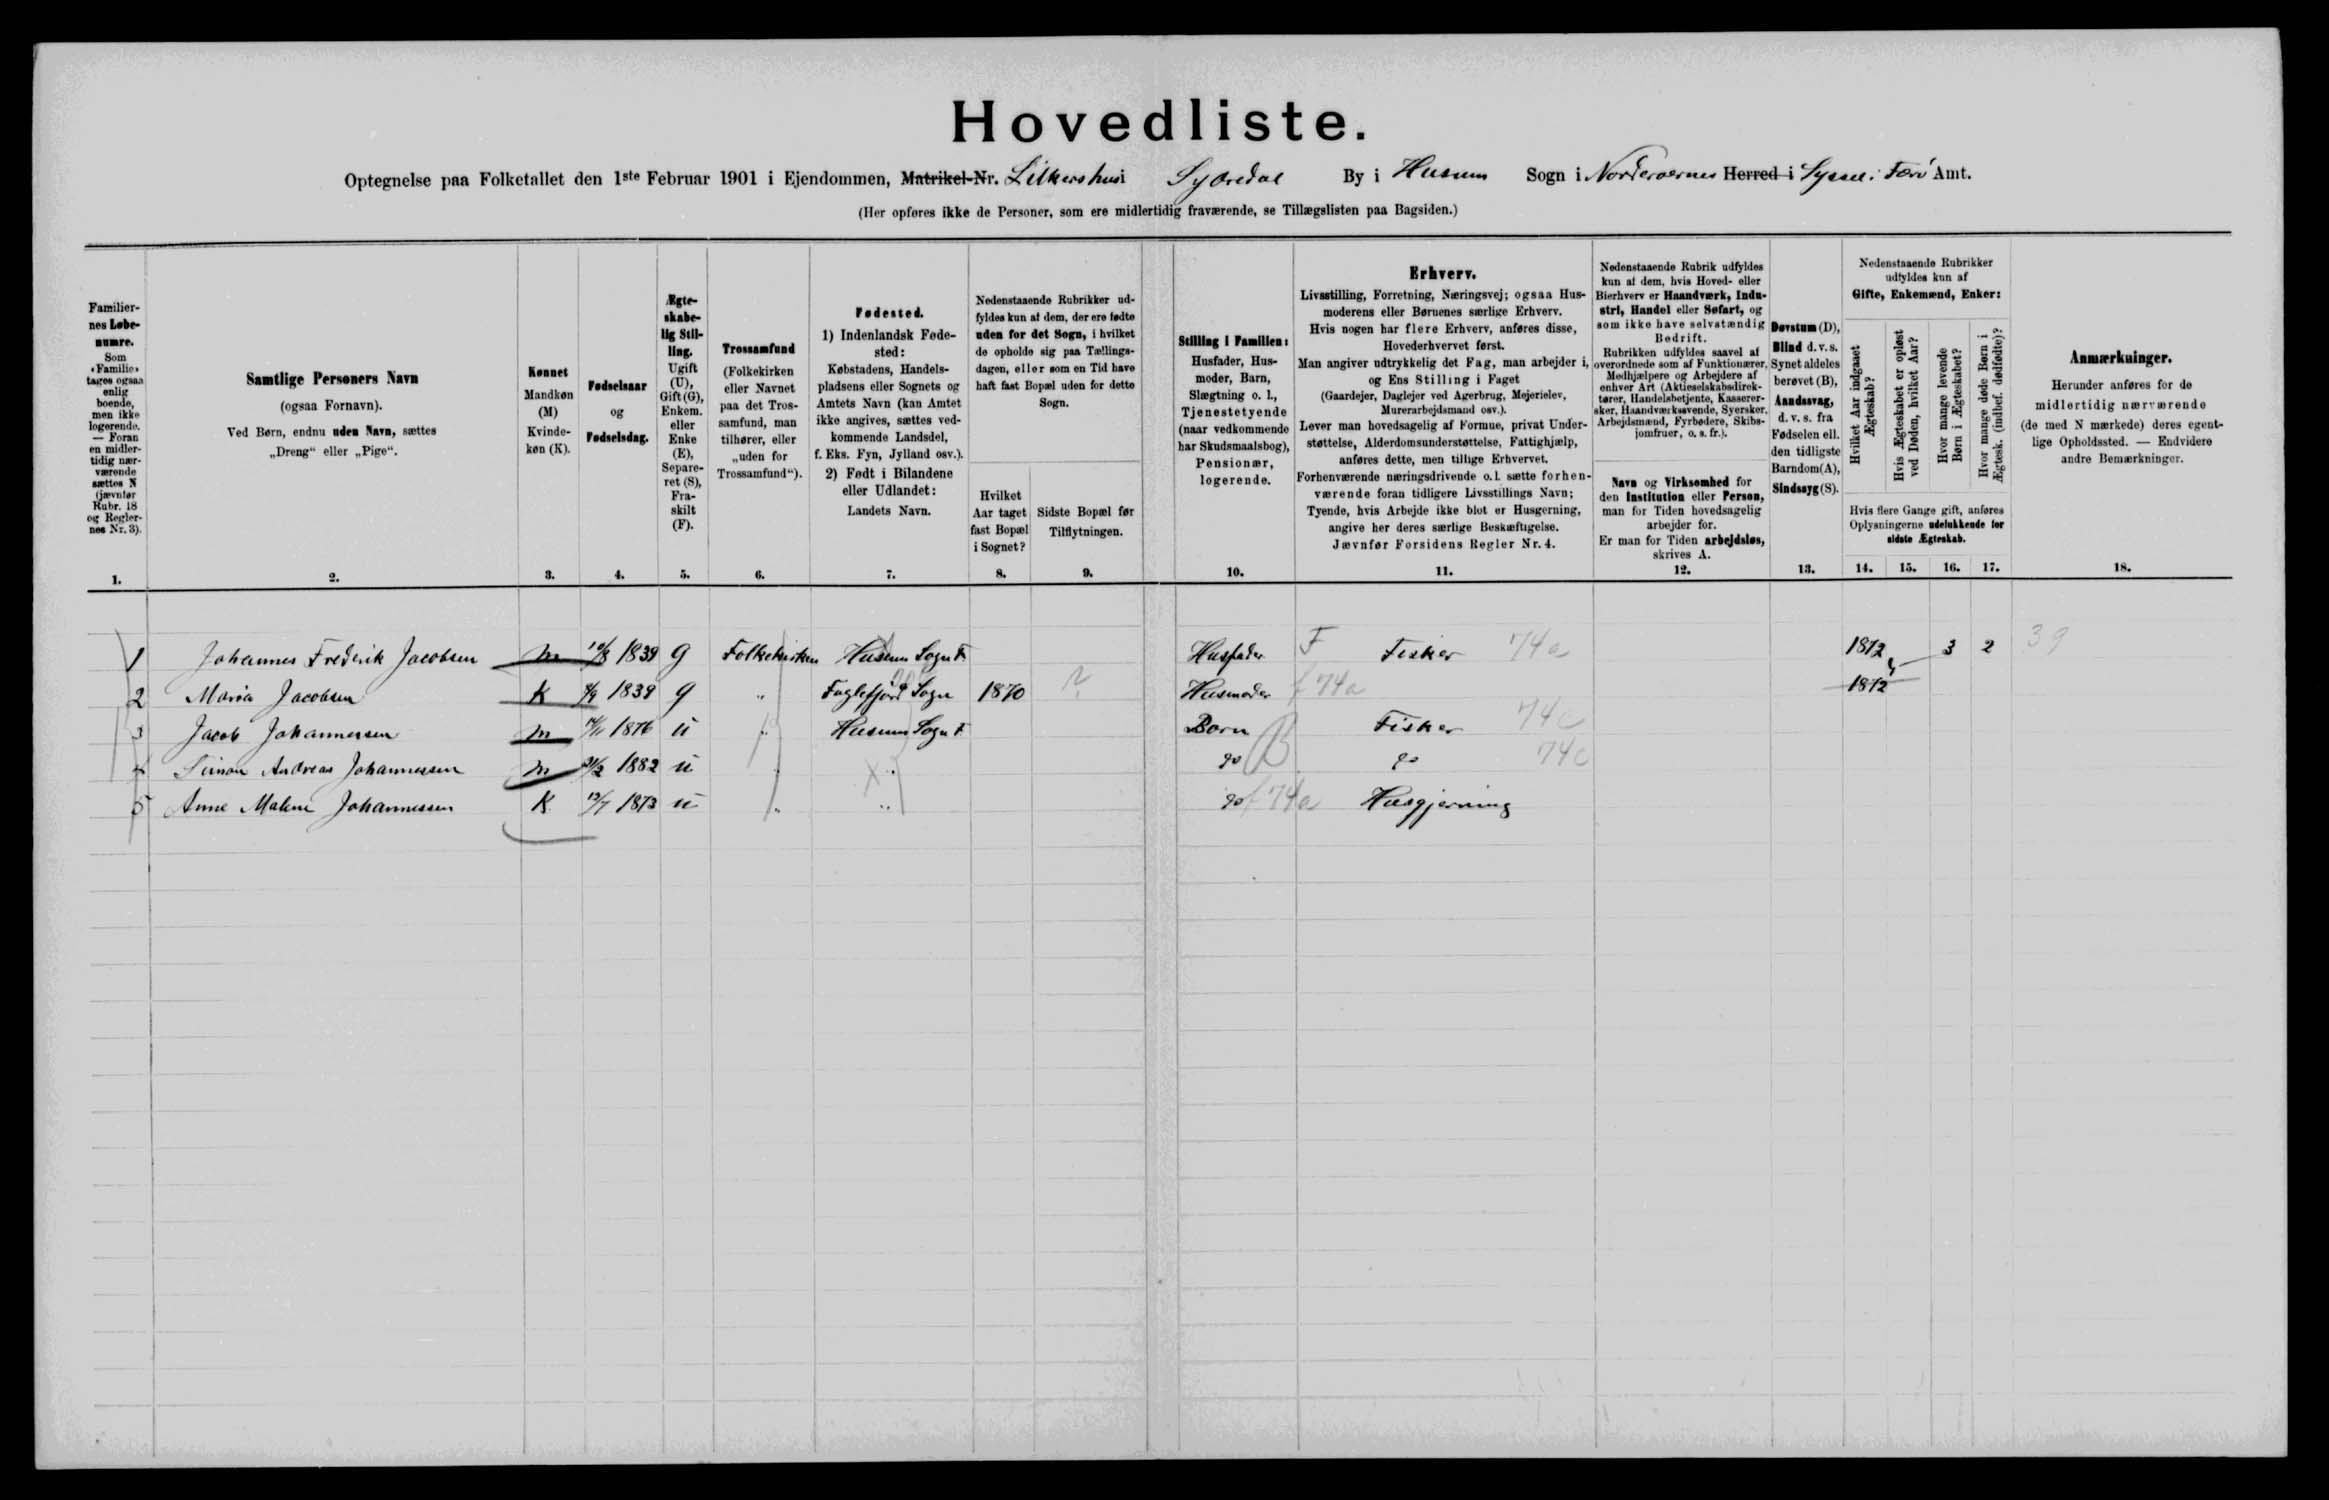 Hovedliste.
Optegnelse paa Folketallet den 1ste Februar 1901 i Ejendommen, Matrikel-Nr. Lilkershusi Sydredal By i Husum Sogn i Norderoernes Herred i Syssel i Færø Amt.
(Her opføres ikke de Personer, som ere midlertidig fraværende, se Tillægslisten paa Bagsiden.)
Familier-
nes Løbe-
numre.
Som
«Familie»
tages ogsaa
enlig
boende,
men ikke
logerende.
— Foran
en midler-
tidig nær-
værende
sættes N
(jævnfør
Rubr. 18
og Regler-
nes Nr. 3).
1.
Samtlige Personers Navn
(ogsaa Fornavn).
Ved Børn, endnu uden Navn, sættes
„Dreng“ eller „Pige“.
2.
Kønnet
Mandkøn
(M)
Kvinde-
køn (K).
3.
Fødselsaar
og
Fødselsdag.
4.
Ægte-
skabe-
lig Stil-
ling.
Ugift
(U),
Gift (G),
Enkem.
eller
Enke
(E),
Separe-
ret (S),
Fra-
skilt
(F).
5.
Trossamfund
(Folkekirken
eller Navnet
paa det Tros-
samfund, man
tilhører, eller
„uden for
Trossamfund“).
6.
Fødested.
1) Indenlandsk Føde-
sted:
Købstadens, Handels-
pladsens eller Sognets og
Amtets Navn (kan Amtet
ikke angives, sættes ved-
kommende Landsdel,
f. Eks. Fyn, Jylland osv.).
2) Født i Bilandene
eller Udlandet:
Landets Navn.
7.
Nedenstaaende Rubrikker ud-
fyldes kun af dem, der ere fødte
uden for det Sogn, i hvilket
de opholde sig paa Tællings-
dagen, eller som en Tid have
haft fast Bopæl uden for dette
Sogn.
Hvilket
Aar taget
fast Bopæl
i Sognet?
8.
Sidste Bopæl før
Tilflytningen.
9.
Stilling i Familien:
Husfader, Hus-
moder, Barn,
Slægtning o. l.,
Tjenestetyende
(naar vedkommende
har Skudsmaalsbog),
Pensionær,
logerende.
10.
Erhverv.
Livsstilling, Forretning, Næringsvej; ogsaa Hus-
moderens eller Børnenes særlige Erhverv.
Hvis nogen har flere Erhverv, anføres disse,
Hovederhvervet først.
Man angiver udtrykkelig det Fag, man arbejder i,
og Ens Stilling i Faget
(Gaardejer, Daglejer ved Agerbrug, Mejerielev,
Murerarbejdsmand osv.).
Lever man hovedsagelig af Formue, privat Under-
støttelse, Alderdomsunderstøttelse, Fattighjælp,
anføres dette, men tillige Erhvervet.
Forhenværende næringsdrivende o. l. sætte forhen-
værende foran tidligere Livsstillings Navn;
Tyende, hvis Arbejde ikke blot er Husgerning,
angive her deres særlige Beskæftigelse.
Jævnfør Forsidens Regler Nr. 4.
11.
Nedenstaaende Rubrik udfyldes
kun af dem, hvis Hoved- eller
Bierhverv er Haandværk, Indu-
stri, Handel eller Søfart, og
som ikke have selvstændig
Bedrift.
Rubrikken udfyldes saavel af
overordnede som af Funktionærer,
Medhjælpere og Arbejdere af
enhver Art (Aktieselskabsdirek-
tører, Handelsbetjente, Kasserer-
sker, Haandværkssvende, Syersker,
Arbejdsmænd, Fyrbødere, Skibs-
jomfruer, o. s. fr.).
Navn og Virksomhed for
den Institution eller Person,
man for Tiden hovedsagelig
arbejder for.
Er man for Tiden arbejdsløs,
skrives A.
12.
Døvstum (D),
Blind d. v. s.
Synet aldeles
berøvet (B),
Aandssvag,
d. v. s. fra
Fødselen ell.
den tidligste
Barndom (A),
Sindssyg (S).
13.
Nedenstaaende Rubrikker
udfyldes kun af
Gifte, Enkemænd, Enker:
Hvilket Aar indgaaet
Ægteskab?
Hvis Ægteskabet er opløst
ved Døden, hvilket Aar?
Hvor mange levende
Børn i Ægteskabet?
Hvor mange døde Børn i
Ægtesk. (indbef. dødfødte)?
Hvis flere Gange gift, anføres
Oplysningerne udelukkende for
sidste Ægteskab.
14. 15. 16. 17.
Anmærkninger.
Herunder anføres for de
midlertidig nærværende
(de med N mærkede) deres egent-
lige Opholdssted. — Endvidere
andre Bemærkninger.
18.
1 Johannes Frederik Jacobsen M 10/8 1839 G Folkekirken Husum Sogn F. Husfader F Fisker 74a 1872 3 2 39
2 Maria Jacobsen K 8/9 1839 G „ Fuglefjord Sogn 1870 ? Husmoder f 74a 1872
3 Jacob Johannessen M 1876 U „ Husum Sogn F Børn Fisker 74c
4 Simon Andreas Johannessen M 1882 U „ X „ do B do 74c
5 Anne Malene Johannessen K 13/7 1873 U „ „ do f 74a Husgjerning